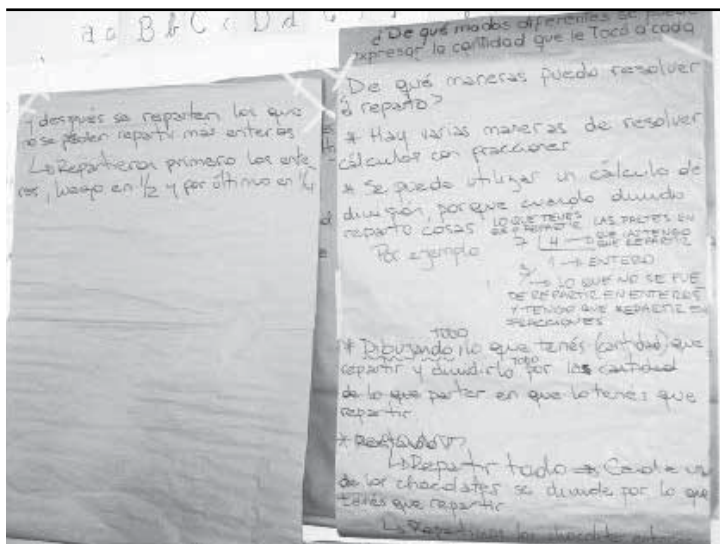 a a B b C c D d
y después se reparten los que
no se pueden repartir mas enteros
↳ Repartieron primero los ente
ros, luego en 1/2 y por último en 1/4
¿De qué modos diferentes se puede
expresar la cantidad que le Tocó a cada
De qué maneras puedo resolver
el reparto?
* Hay varias maneras de resolver
cálculos con fracciones
* Se puede utilizar un cálculo de
división, porque cuando divido
reparto cosas
LO QUE TENES
QUE REPARTIR
LAS PARTES EN
7 | 4 → QUE LAS TENGO
QUE REPARTIR
Por ejemplo
1 → ENTERO
3 → LO QUE NO SE PUE
DE REPARTIR EN ENTEROS
Y TENGO QUE REPARTIR EN
FRACCIONES
TODO
* Dibujando lo que tenés (cantidad) que
repartir y dividirlo TODO por la cantidad
de lo que partes en que lo tenés que
repartir
*
↳ Repartir todo → Cada un
de los chocolates se divide por lo que
tenés que repartir
↳ los chocolates enteros